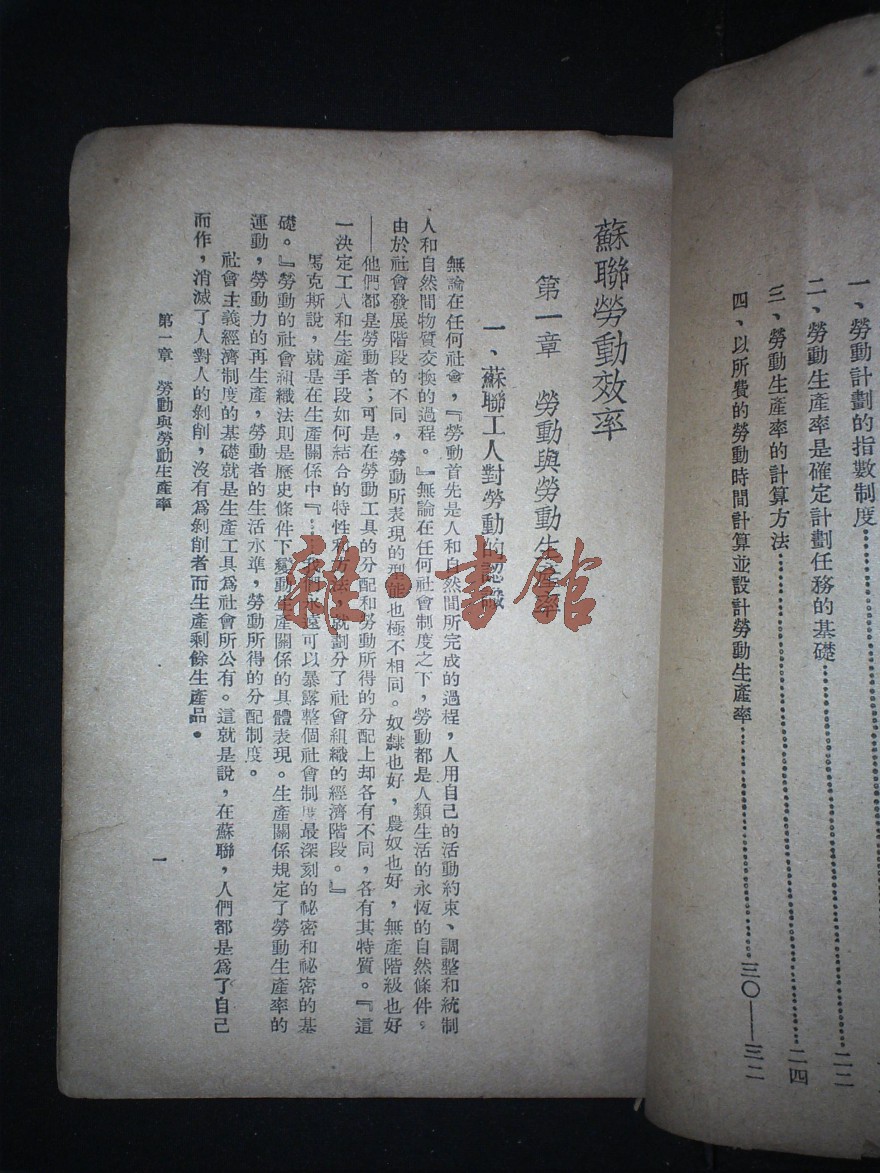 一、勞動計劃的指數制度……………二二
二、勞動生產率是確定計劃任務的基礎……………二四
三、勞動生產率的計算方法……………
四、以所費的勞動時間計算並設計勞動生產率……………三〇——三二
蘇聯勞動效率
第一章 勞動與勞動生產率
一、蘇聯工人對勞動的認識
無論在任何社會，『勞動首先是人和自然間所完成的過程，人用自己的活動約束、調整和統制
人和自然間物質交換的過程。』無論在任何社會制度之下，勞動都是人類生活的永恆的自然條件。
由於社會發展階段的不同，勞動所表現的型態也極不相同。奴隸也好，農奴也好，無產階級也好
——他們都是勞動者；可是在勞動工具的分配和勞動所得的分配上却各有不同，各有其特質。『這
一決定工人和生產手段如何結合的特性和方法，就劃分了社會組織的經濟階段。』
馬克斯說，就是在生產關係中『…我們永遠可以暴露整個社會制度最深刻的祕密和祕密的基
礎。』勞動的社會組織法則是歷史條件下變動生產關係的具體表現。生產關係規定了勞動生產率的
運動，勞動力的再生產，勞動者的生活水準，勞動所得的分配制度。
社會主義經濟制度的基礎就是生產工具為社會所公有。這就是說，在蘇聯，人們都是為了自己
而作，消滅了人對人的剝削，沒有為剝削者而生產剩餘生產品。
第一章 勞動與勞動生產率
一
雜·書館